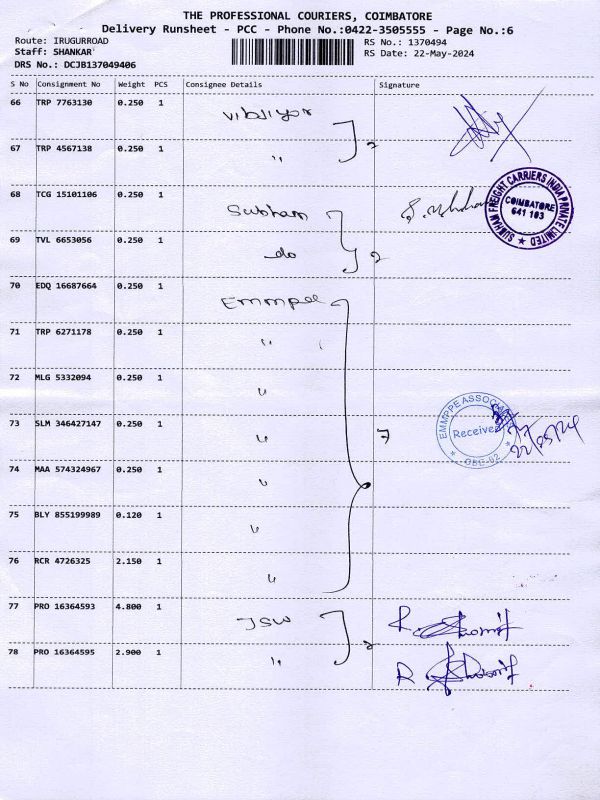 THE PROFESSIONAL COURIERS, COIMBATORE
Delivery Runsheet - PCC - Phone No.:0422-3505555 - Page No.:6
Route: IRUGURROAD
RS No.: 1370494
Staff: SHANKAR
RS Date: 22-May-2024
DRS No.: DCJB137049406
S No Consignment No Weight PCS Consignee Details Signature
66 TRP 7763130 0.250 1
67 TRP 4567138 0.250 1 " 2
68 TCG 15101106 0.250 1 Subham
SUBHAM FREIGHT CARRIERS INDIA PRIVATE LIMITED
COIMBATORE
641 103
69 TVL 6653056 0.250 1 do 2
70 EDQ 16687664 0.250 1 Emmpee
71 TRP 6271178 0.250 1 "
72 MLG 5332094 0.250 1 "
73 SLM 346427147 0.250 1 " 7
EMMPPE ASSOCIATES
Received
CBE-02
22/05/24
74 MAA 574324967 0.250 1 "
75 BLY 855199989 0.120 1 "
76 RCR 4726325 2.150 1 "
77 PRO 16364593 4.800 1 JSW
78 PRO 16364595 2.900 1 " 2